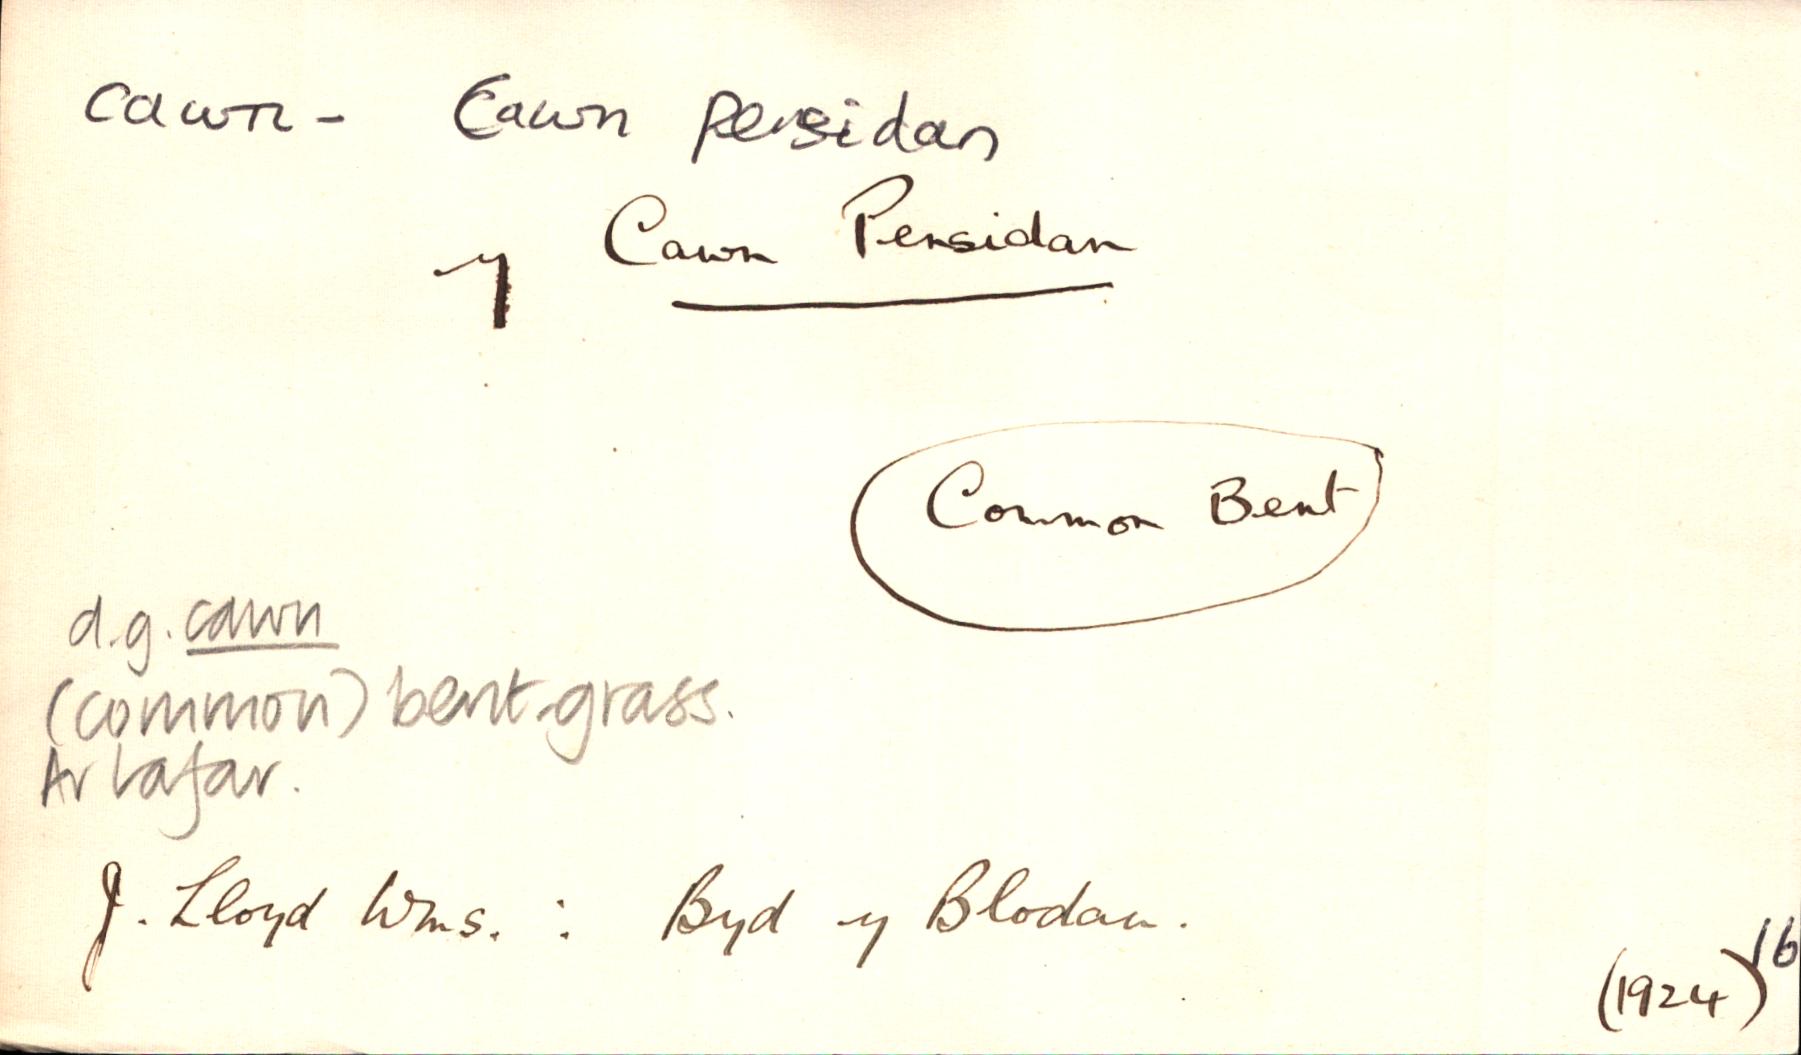 cawn - Cawn persidan
y Cawn Persidan
Common Bent
d.g. cawn
(common) bent-grass.
Ar lafar.
J. Lloyd Wms. : Byd y Blodau.
(1924) 16